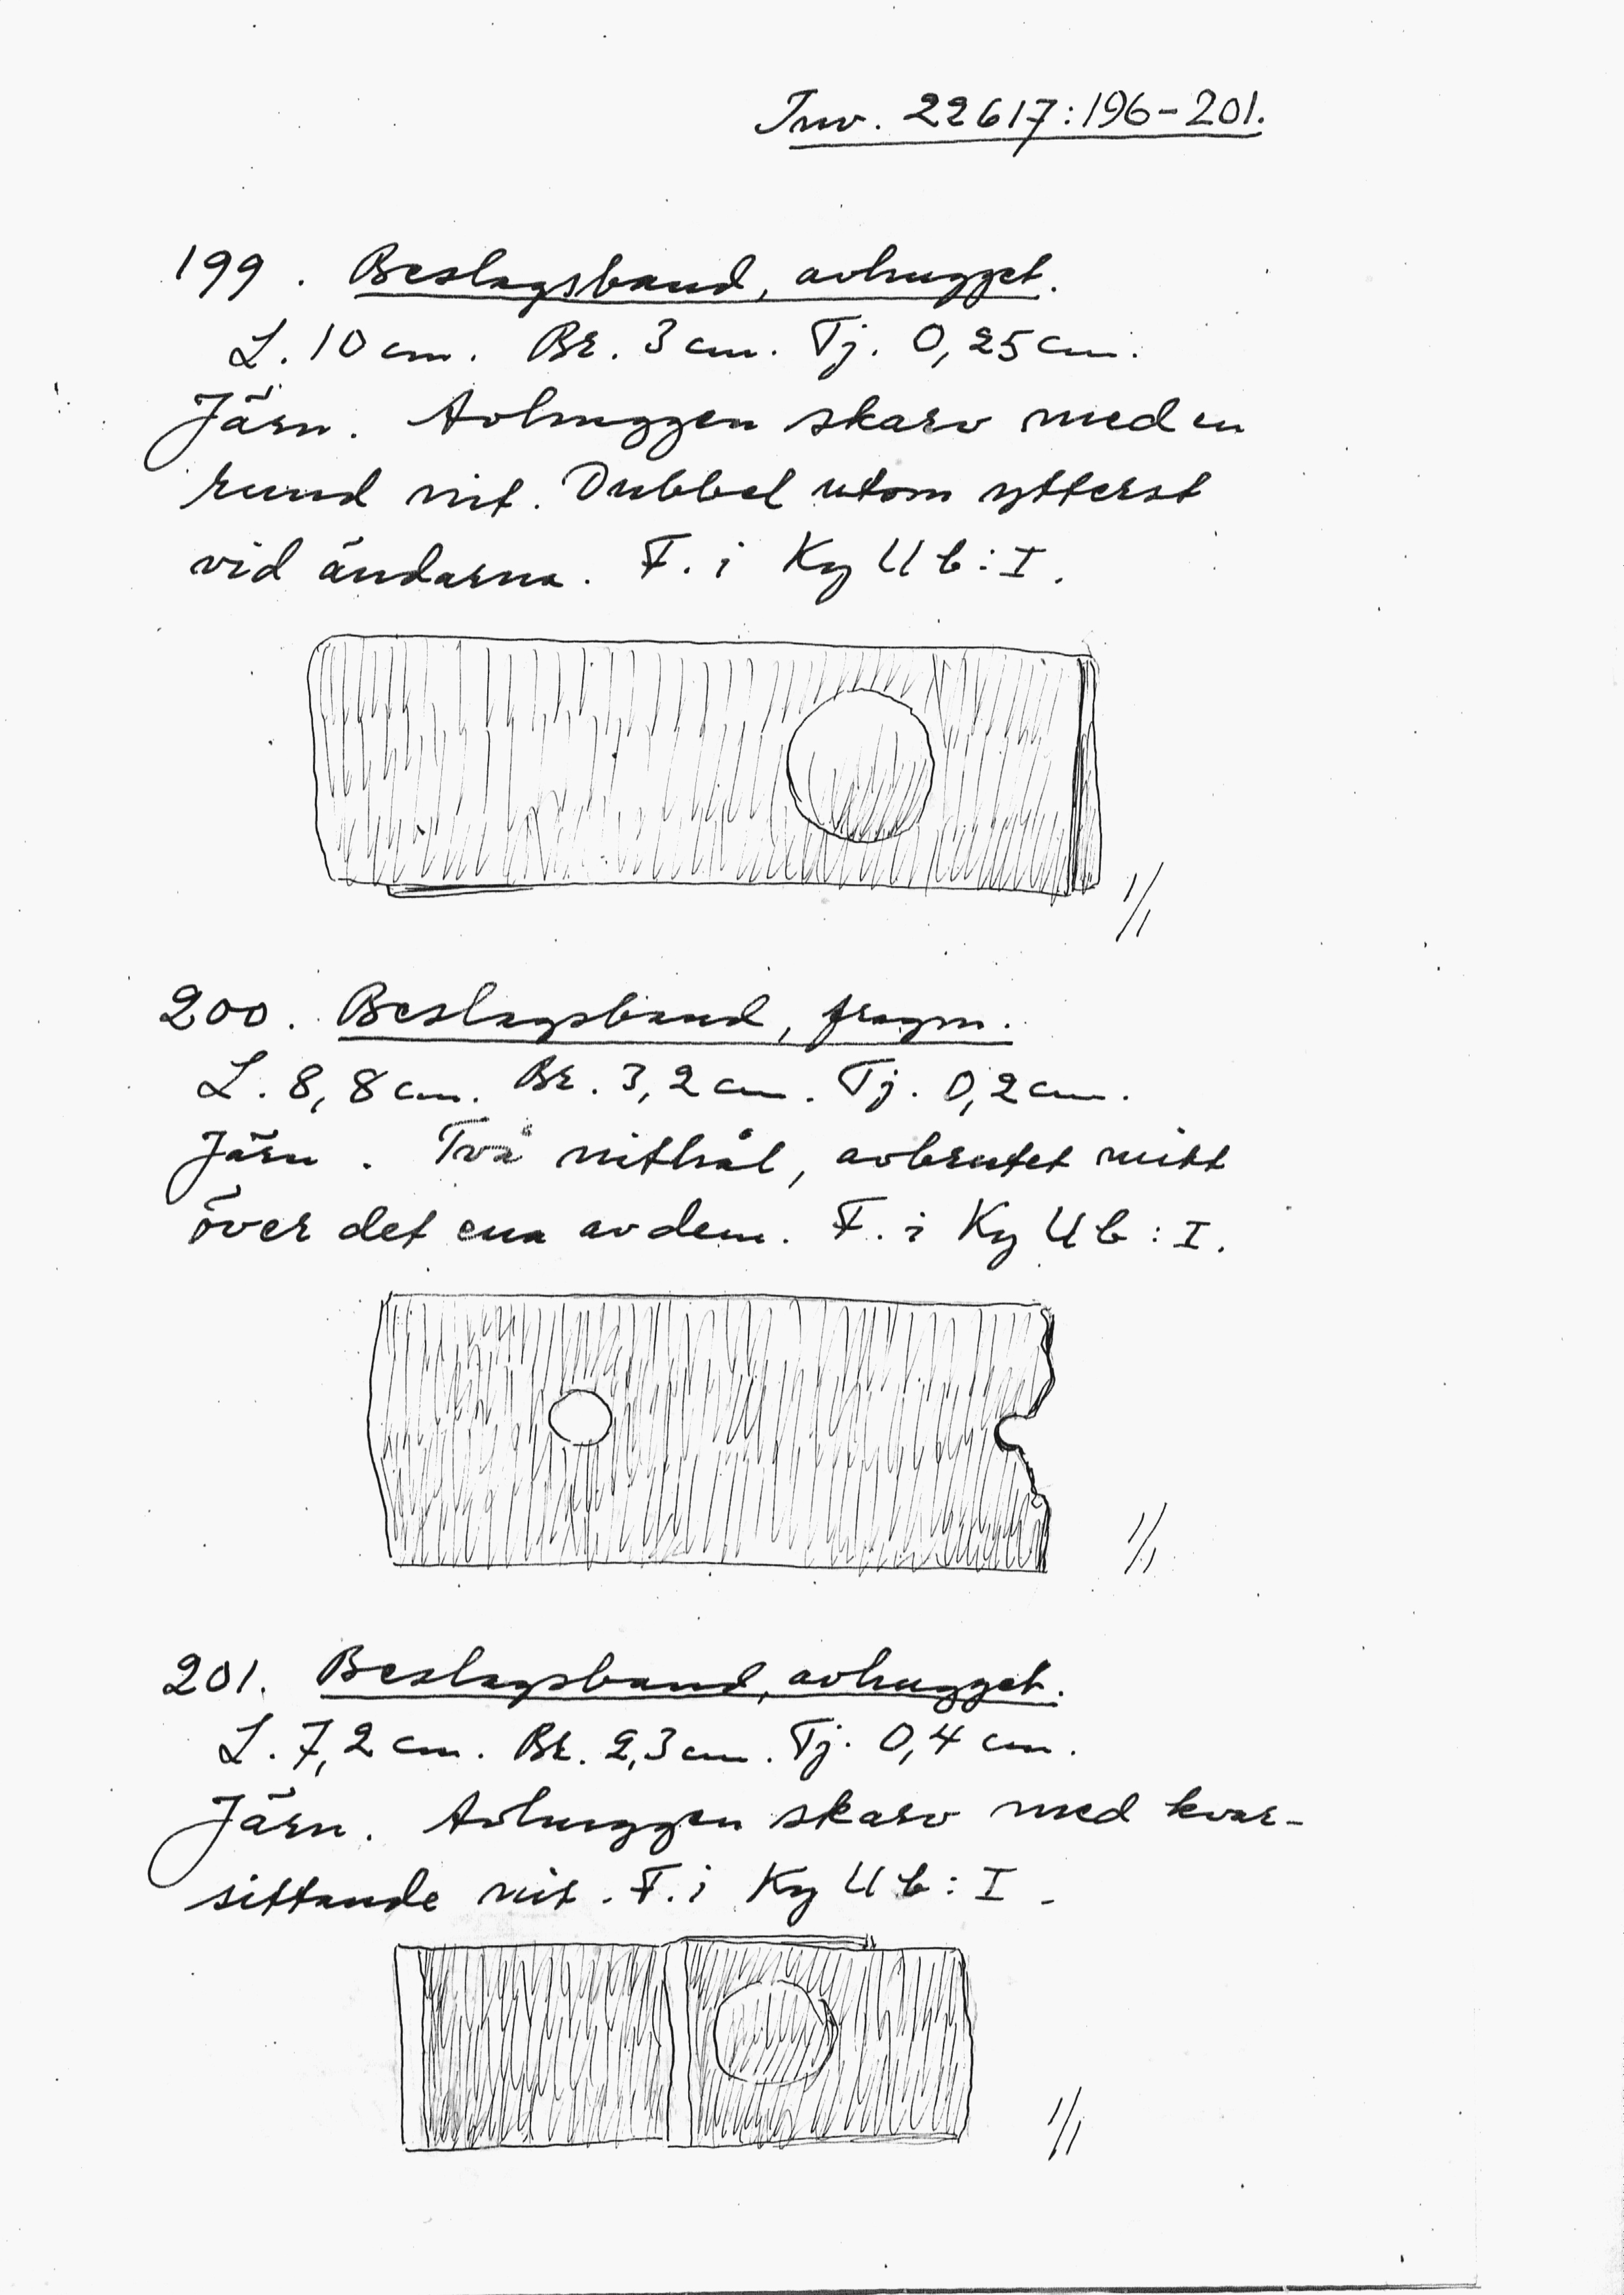 Inv. 22617:196-201.
199. Beslagsband, avhugget.
L. 10 cm. Br. 3 cm. Tj. 0,25 cm.
Järn. Avhuggen skarv med en
rund nit. Dubbel utom ytterst
vid ändarna. F. i Ky U b: I.
1/1
200. Beslagsband, fragm.
L. 8,8 cm. Br. 3,2 cm. Tj. 0,2 cm.
Järn. Två nithål, avbrutet mitt
över det ena av dem. F. i Ky U b: I.
1/1
201. Beslagsband, avhugget.
L. 7,2 cm. Br. 2,3 cm. Tj. 0,4 cm.
Järn. Avhuggen skarv med kvar-
sittande nit. F. i Ky U b: I.
1/1